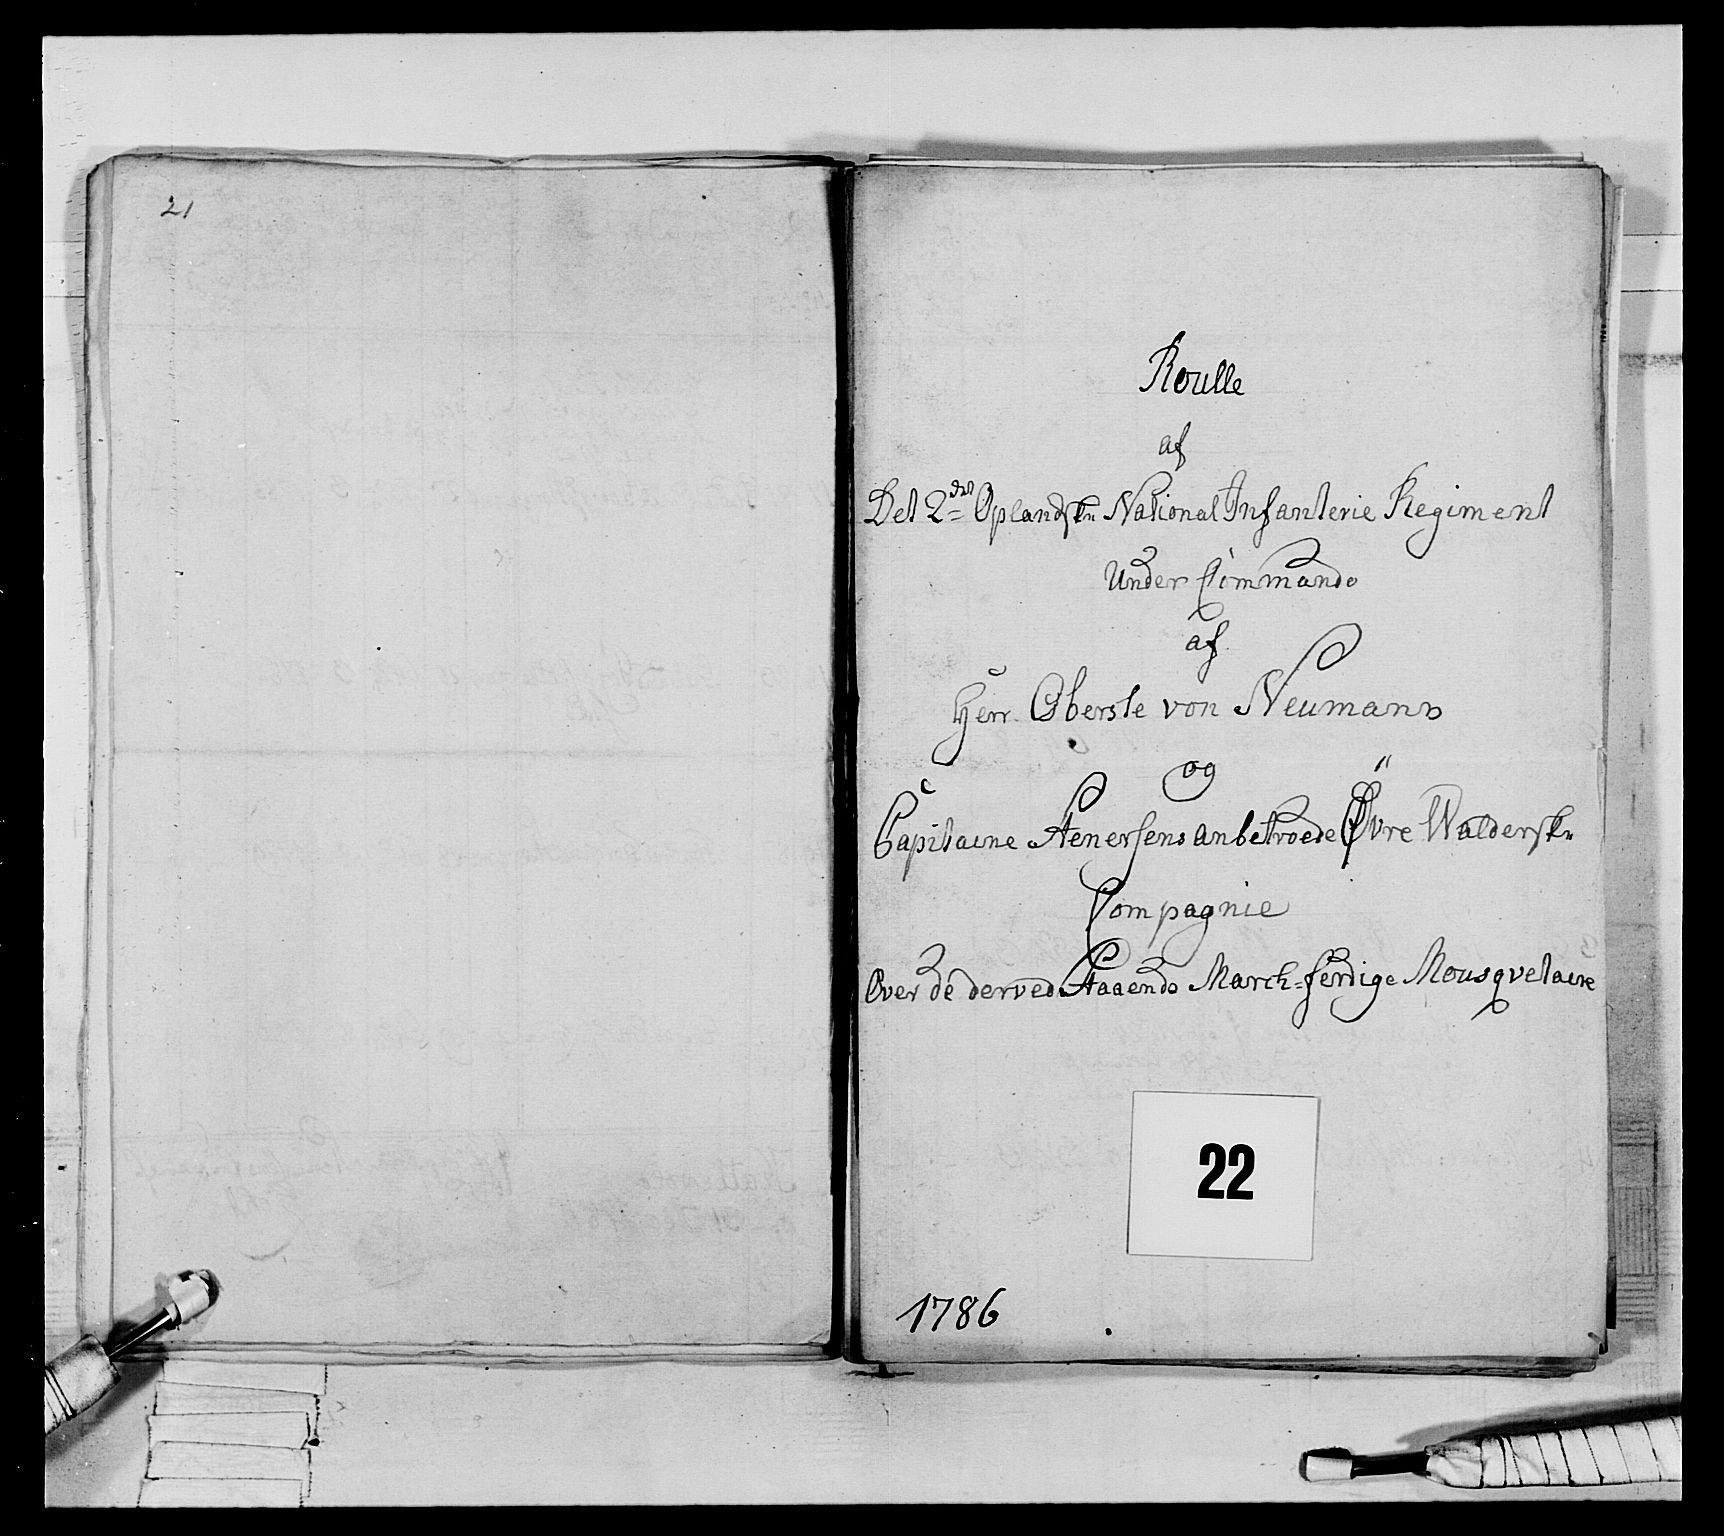 21
Roulle
af
Det 2det Oplandske National Infanterie Regiment
Under Commando
af
Herr Oberste von Neumann
og
Capitaine Stenersens anbetroede Øvre Walderske
Compagnie
Over de derved Staaende March=ferdige Mousqvetaire
22
1786